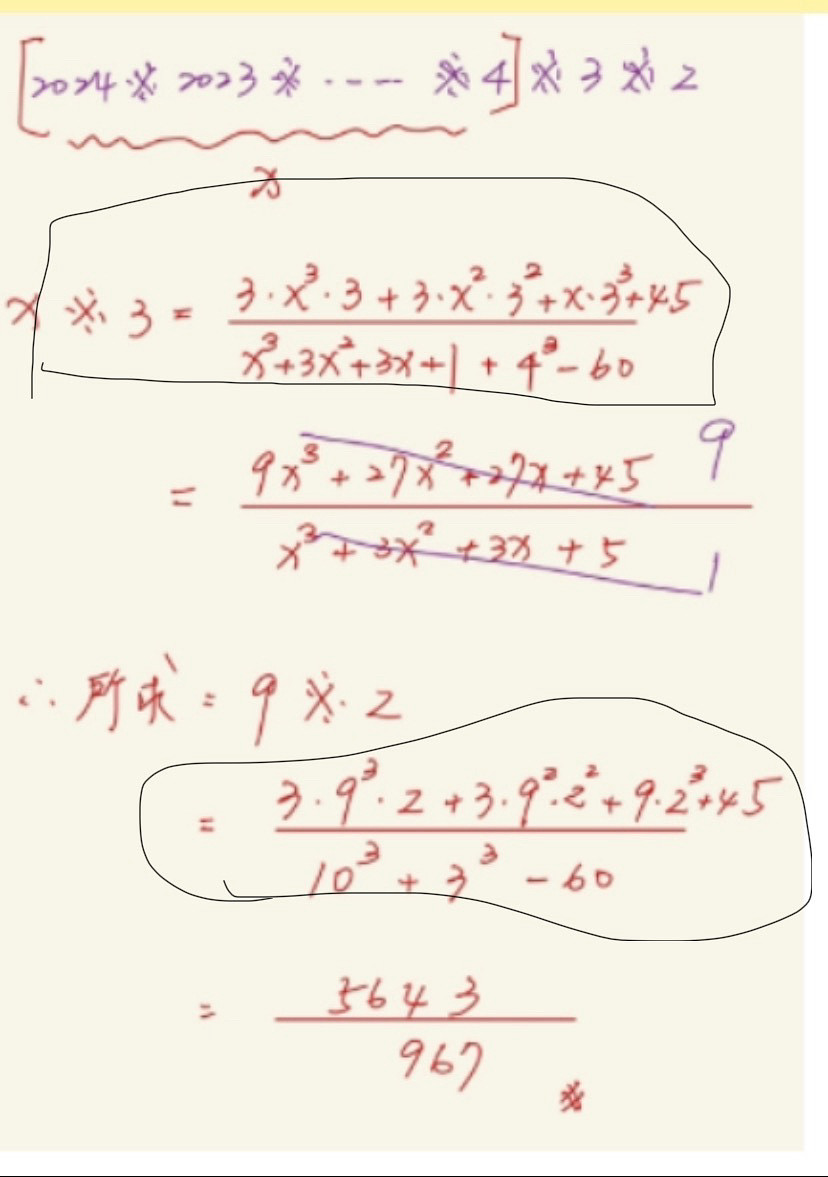 [2024 ※ 2023 ※ ---- ※ 4] ※ 3 ※ 2
x
x ※ 3 = (3·x³·3 + 3·x²·3² + x·3³ + 45) / (x³ + 3x² + 3x + 1 + 4³ - 60)
= (9x³ + 27x² + 27x + 45) / (x³ + 3x² + 3x + 5) 9 / 1
∴ 所求 = 9 ※ 2
= (3·9³·2 + 3·9²·2² + 9·2³ + 45) / (10³ + 3³ - 60)
= 5643 / 967 ※